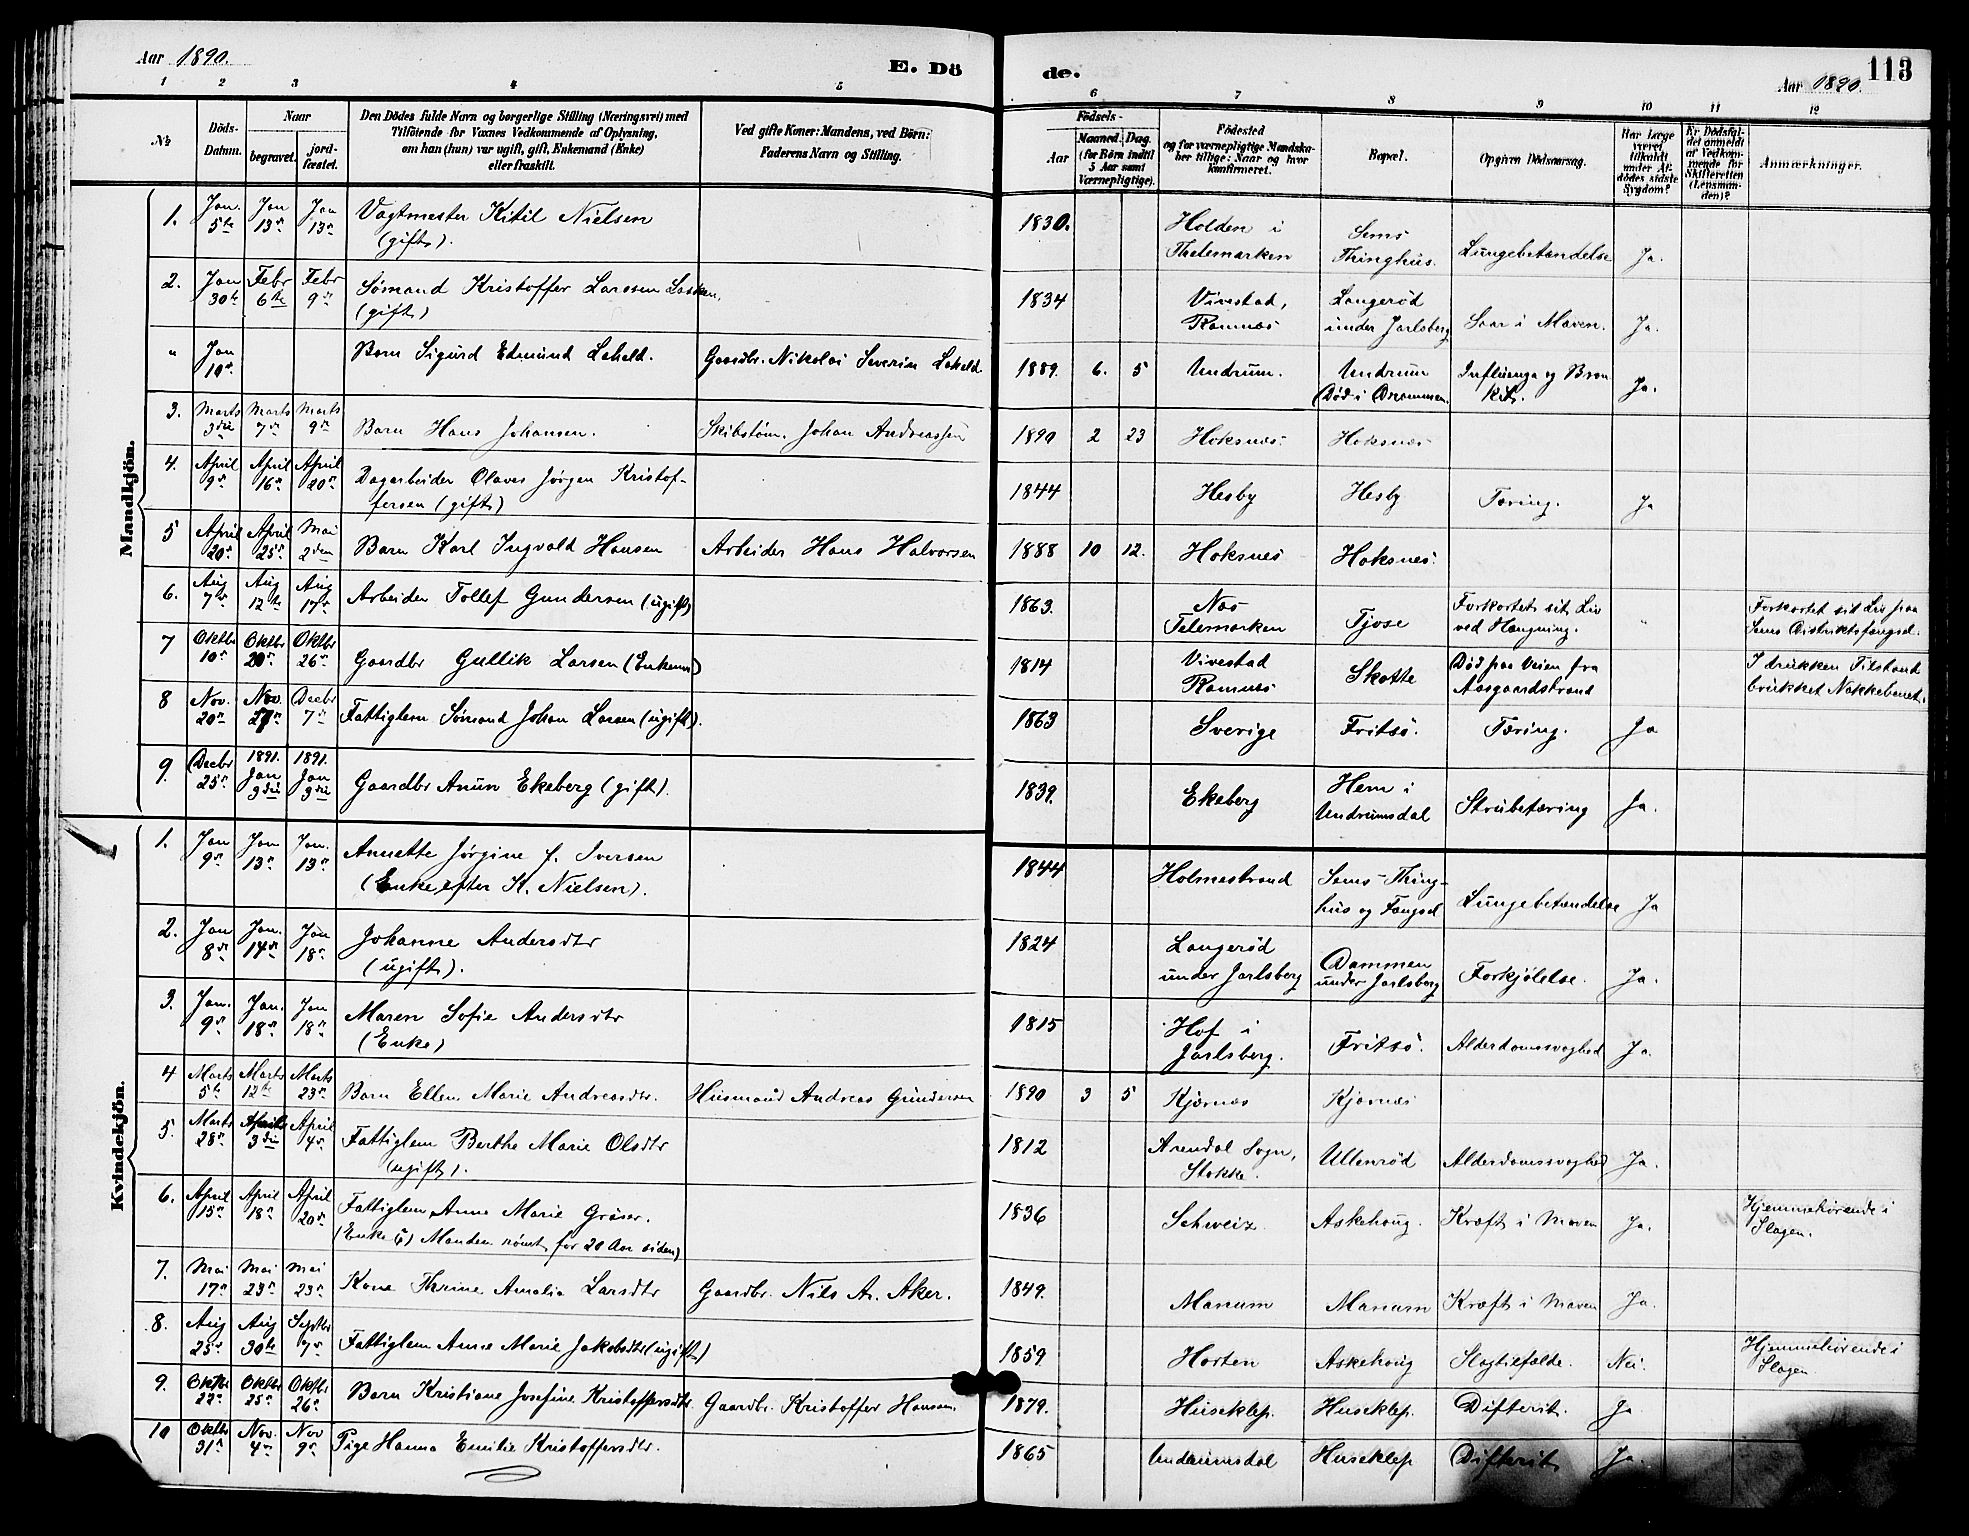 Aar 1890.
E. Dö
de.
Aar 1890.
113
1 2 3 4 5 6 7 8 9 10 11 12
No.
Döds-Datum.
Naar
begravet.
jordfæstet.
Den Dödes fulde Navn og borgerlige Stilling (Næringsvei) med
Tilföiende for Voxnes Vedkommende af Oplysning,
om han (hun) var ugift, gift, Enkemand (Enke)
eller fraskilt.
Ved gifte Koner: Mandens, ved Börn:
Faderens Navn og Stilling.
Födsels-
Aar
Maaned. Dag.
(for Börn indtil
5 Aar samt
Værnepligtige).
Födested
og for værnepligtige Mandskaber tillige: Naar og hvor
konfirmeret.
Bopæl.
Opgiven Dödsaarsag.
Har Læge
været
tilkaldt
under Afdödes sidste
Sygdom?
Er Dödsfaldet anmeldt
af Vedkommende for
Skifteretten
(Lensmanden)?
Anmærkninger.
Mandkjön.
1. Jan. 5te Jan 13de Jan 13de Vagtmester Kitil Nielsen (gift). 1830. Holden i Thelemarken Sems Thinghus. Lungebetændelse Ja.
2. Jan 30te Febr 6te Febr 9de Sømand Kristoffer Larssen Løkken, (gift) 1834 Vivestad, Ramnæs Langerød under Jarlsberg Saar i Maven. Ja.
" Jan 19de Barn Sigurd Edmund Leheld. Gaardbr. Nikolai Severin Leheld 1889. 6. 5 Undrum. Undrum (Død i Drammen. Influenza og Bronkit. Ja.
3. Marts 3die Marts 7de Marts 9de Barn Hans Johansen. Skibstøm. Johan Andreassen 1890 2 23 Hoksnæs. Hoksnæs
4. April 9de April 16de April 20de Dagarbeider Olaves Jørgen Kristoffersen (gift) 1844 Hesby Hesby Tæring. Ja
5 April 20de April 25de Mai 2den Barn Karl Ingvald Hansen Arbeider Hans Halvorsen 1888 10 12. Hoksnæs Hoksnæs.
6. Aug 7de Aug 12te Aug 17de Arbeider Tollef Gundersen (ugift) 1863. Næs Telemarken Tjose Forkortet sit Liv ved Hængning. " Forkortet sit Liv paa Sems Distriktsfængsel.
7 Oktbr 10de Oktbr 20de Oktbr 26de Gaardbr Gullik Larsen (Enkem) 1814 Vivestad Ramnæs Skotte Død paa Veien fra Aasgaardstrand I drukken Tilstand brukket Nakkebenet.
8 Nov. 20de Nov. 27de Decbr 7de Fattiglem Sømand Johan Larsen (ugift). 1863 Sverige Fritsø. Tæring. Ja
9. Decbr 25de 1891. Jan 3die 1891. Jan 3die Gaardbr Anun Ekeberg (gift). 1839. Ekeberg Hem i Undrumsdal Strubetæring Ja.
Kvindekjön.
1. Jan 9de Jan 13de Jan. 13de Annette Jørgine f. Iversen (Enke efter K. Nielsen). 1844 Holmestrand Sems Thinghus og Fængsel Lungebetændelse Ja
2. Jan 8de Jan. 14de Jan 18de Johanne Andersdtr (ugift). 1824 Langerød under Jarlsberg Dammen under Jarlsberg Forkjølelse. Ja.
3. Jan. 9de Jan. 18de Jan 18de Maren Sofie Andersdtr (Enke) 1815 Hof i Jarlsberg. Fritsø. Alderdomssvaghed Ja.
4 Marts 5te Marts 12te Marts 23de Barn Ellen Marie Andreasdtr. Husmand Andreas Gundersen 1890 3 5 Kjærnæs Kjærnæs
5. Marts 28de April 3die April 4de Fattiglem Berthe Marie Olsdtr (ugift). 1812 Arendal Sogn, Stokke. Ullenrød Alderdomssvaghed Ja.
6. April 15de April 18de April 20de Fattiglem Anne Marie Grøner. (Enke (?) Manden rømt for 20 Aar siden) 1836 Schweiz. Askehoug. Kræft i Maven Ja. Hjemmehørende i Slagen.
7. Mai 17de Mai 23de Mai 23de Kone Thrine Amalia Larsdtr Gaardbr. Nils A. Aker. 1849. Manum Manum Kræft i Maven Ja.
8. Aug 25de Aug 30te Septbr 7de Fattiglem Anne Marie Jakobsdtr (ugift) 1859 Horten Askehoug Slagtilfælde. Nei. Hjemmehørende i Slagen
9. Oktbr 22de Oktbr 25de Oktbr 26de Barn Kristiane Josefine Kristoffersdtr. Gaardbr. Kristoffer Hansen. 1879. Huseklep. Huseklep. Difterit. Ja
10 Oktbr 31te Nov. 4de Nov 9de Pige Hanna Emilie Kristoffersdtr. 1865 Undrumsdal Huseklep Difterit Ja.